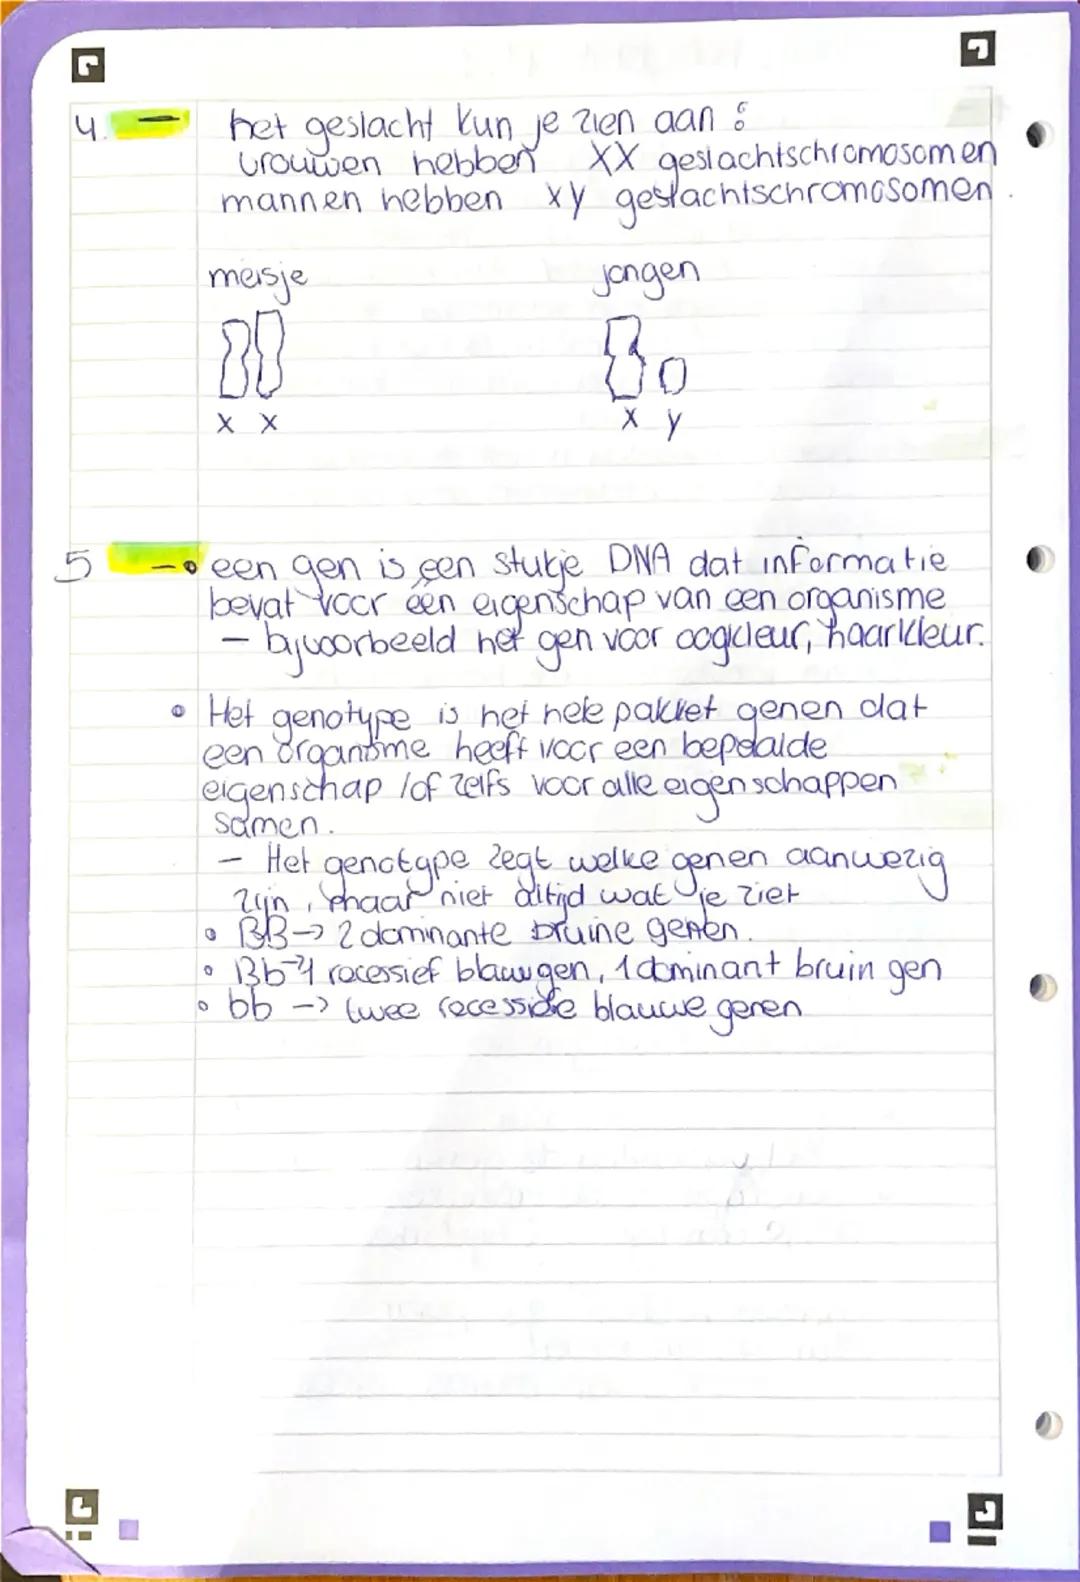 4. - het geslacht kun je zien aan :
vrouwen hebben XX geslachtschromosomen
mannen hebben xy geslachtschromosomen.
meisje jongen
x x x y
5 - • een gen is een stukje DNA dat informatie
bevat voor één eigenschap van een organisme
- bijvoorbeeld het gen voor oogkleur, haarkleur.
• Het genotype is het hele pakket genen dat
een organisme heeft voor een bepaalde
eigenschap /of zelfs voor alle eigenschappen
samen.
- Het genotype zegt welke genen aanwezig
zijn, maar niet altijd wat je ziet
• BB → 2 dominante bruine genen.
• Bb → 1 recessief blauw gen, 1 dominant bruin gen
• bb -> twee recessieve blauwe genen